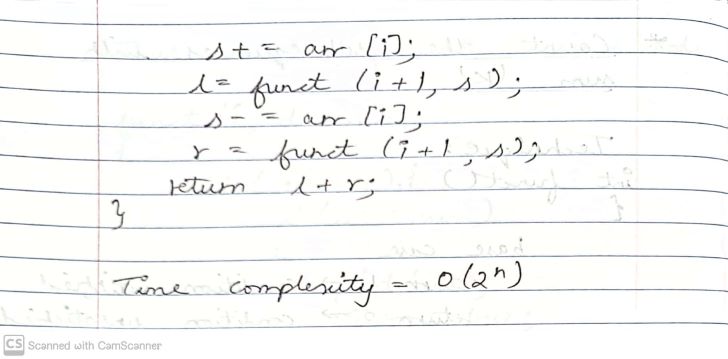 s+ = arr [i];
l = funct (i+1, s);
s- = arr [i];
r = funct (i+1, s);
return l+r;
}
Time complexity = O(2ⁿ)
CS Scanned with CamScanner